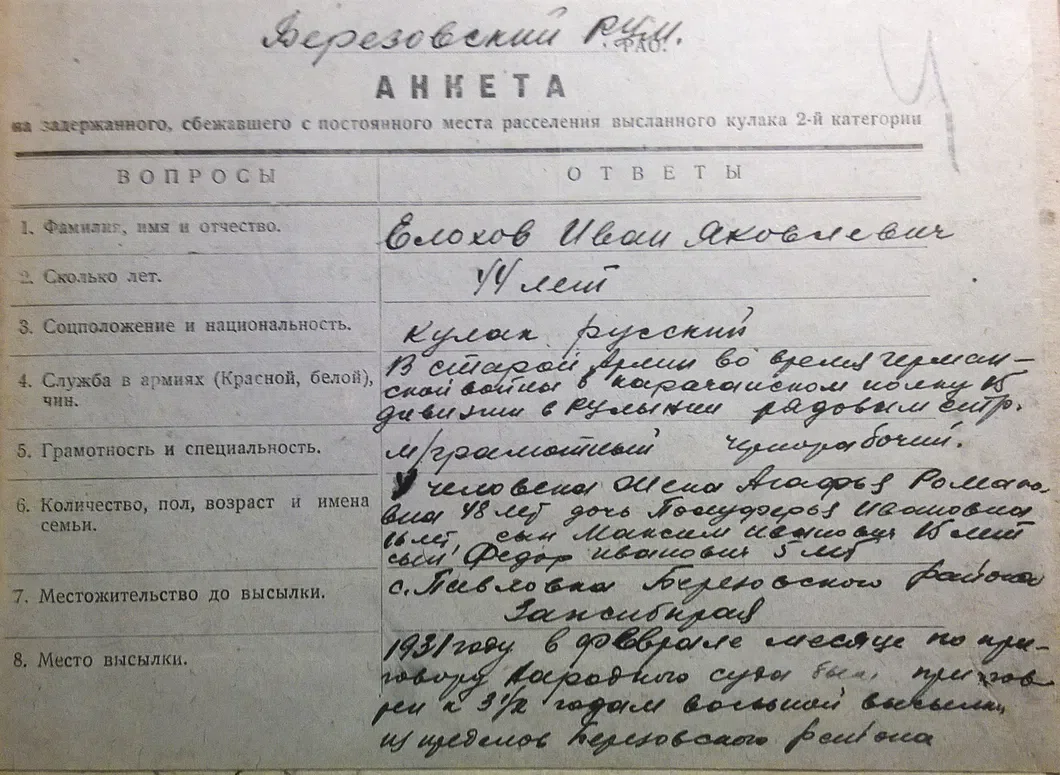 Березовский РУМ.
РАО.
АНКЕТА
на задержанного, сбежавшего с постоянного места расселения высланного кулака 2-й категории
ВОПРОСЫ
ОТВЕТЫ
1. Фамилия, имя и отчество.
Елохов Иван Яковлевич
2. Сколько лет.
44 лет
3. Соцположение и национальность.
кулак русский
4. Служба в армиях (Красной, белой),
чин.
В старой армии во время герман-
ской войны в карачаиском полку 15
дивизии в румынии рядовым стр.
5. Грамотность и специальность.
м/грамотный чернорабочий.
6. Количество, пол, возраст и имена
семьи.
человека жена Агафья Романо-
вна 48 лет дочь Ивановна
16 лет сын Максим иванович 15 лет
сын Федор иванович 5 лет
7. Местожительство до высылки.
с. Павловка Березовского района
Запсибкрая
8. Место высылки.
1931 году в феврале месяце по при-
говору Народного суда был пригов
рен к 3 1/2 годам вольной высылки
из пределов Березовского района